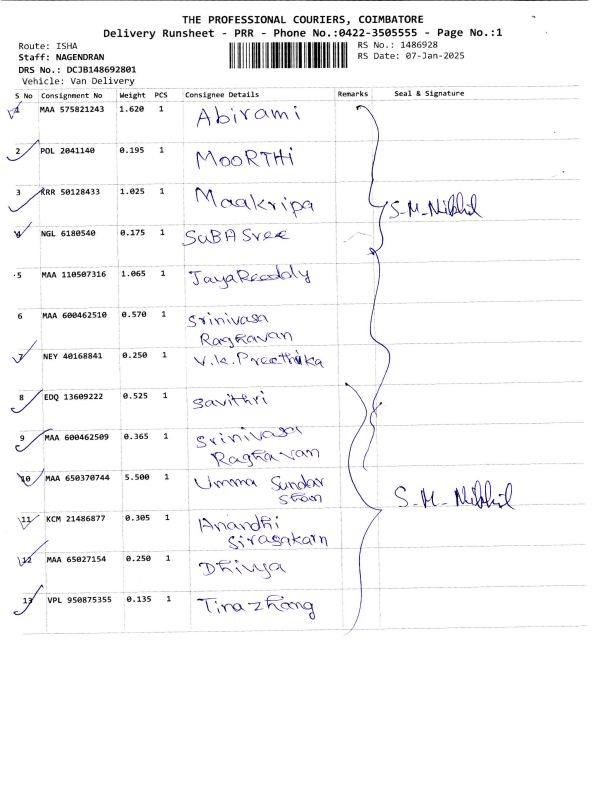 THE PROFESSIONAL COURIERS, COIMBATORE
Delivery Runsheet - PRR - Phone No.:0422-3505555 - Page No.:1
Route: ISHA
RS No.: 1486928
Staff: NAGENDRAN
RS Date: 07-Jan-2025
DRS No.: DCJB148692801
Vehicle: Van Delivery
S No Consignment No Weight PCS Consignee Details Remarks Seal & Signature
1 MAA 575821243 1.620 1 Abirami
2 POL 2041140 0.195 1 MooRTHi
3 KRR 50128433 1.025 1 Maakripa
S-M-Nikhil
4 NGL 6180540 0.175 1 SuBASree
5 MAA 110507316 1.065 1 JayaReaddy
6 MAA 600462510 0.570 1 Srinivasa
Raghavan
7 NEY 40168841 0.250 1 V.k.Preethika
8 EDQ 13609222 0.525 1 Savithri
9 MAA 600462509 0.365 1 Srinivasa
Raghavan
10 MAA 650370744 5.500 1 Umma Sundar
S-M-Nikhil
11 KCM 21486877 0.305 1 Anandhi
12 MAA 65027154 0.250 1 Dhivya
13 VPL 950875355 0.135 1 Tinazhang